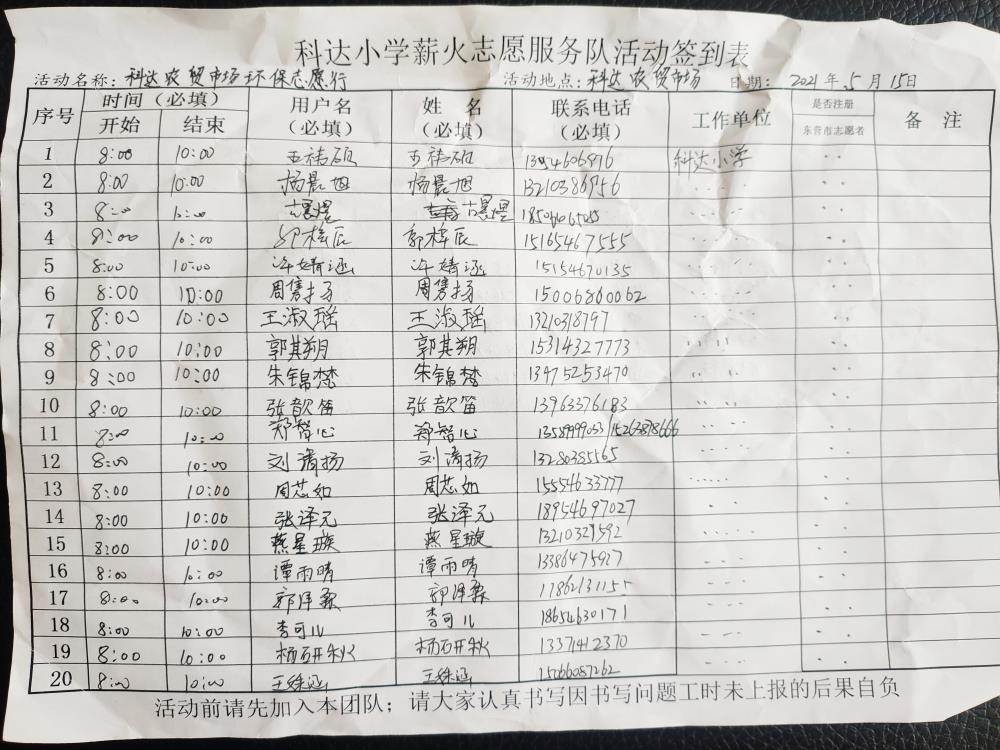 科达小学薪火志愿服务队活动签到表
活动名称：科达农贸市场环保志愿行 活动地点：科达农贸市场 日期：2021年5月15日
序号 时间（必填） 用户名（必填） 姓名（必填） 联系电话（必填） 工作单位 是否注册东营市志愿者 备注
开始 结束
1 8:00 10:00 科达小学
2 8:00 10:00 杨晨旭 杨晨旭
3 8:00 10:00
4 8:00 10:00 15165467555
5 8:00 10:00 许婧涵 许婧涵 15154670135
6 8:00 10:00 周隽扬 周隽扬 15006860062
7 8:00 10:00 王淑瑶 王淑瑶 13210318797
8 8:00 10:00 郭其朔 郭其朔 15314327773
9 8:00 10:00 朱锦梵 朱锦梵 13475253470
10 8:00 10:00 张歆笛 张歆笛 13963376183
11 8:00 10:00 郑智心 郑智心
12 8:00 10:00 刘清扬 刘清扬 13280385565
13 8:00 10:00 周芯如 周芯如 15554633777
14 8:00 10:00 张泽元 张泽元 18954697027
15 8:00 10:00 燕星璇 燕星璇 13210329592
16 8:00 10:00 谭雨晴 谭雨晴
17 8:00 10:00 17862131155
18 8:00 10:00 李可儿 李可儿 18654630171
19 8:00 10:00 杨研秋 杨研秋 13371412370
20 8:00 10:00 15066087262
活动前请先加入本团队；请大家认真书写因书写问题工时未上报的后果自负